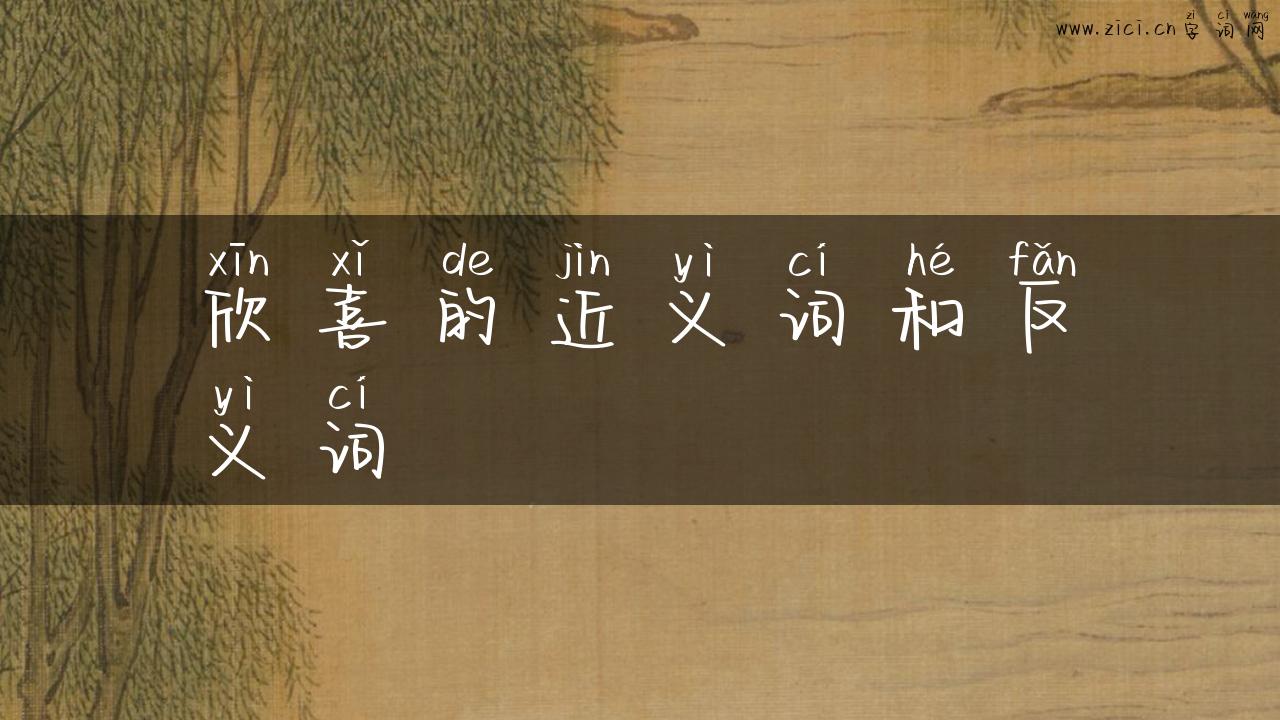 zì cí wǎng
www.zici.cn 字词网
xīn xǐ de jìn yì cí hé fǎn
欣喜的近义词和反
yì cí
义词